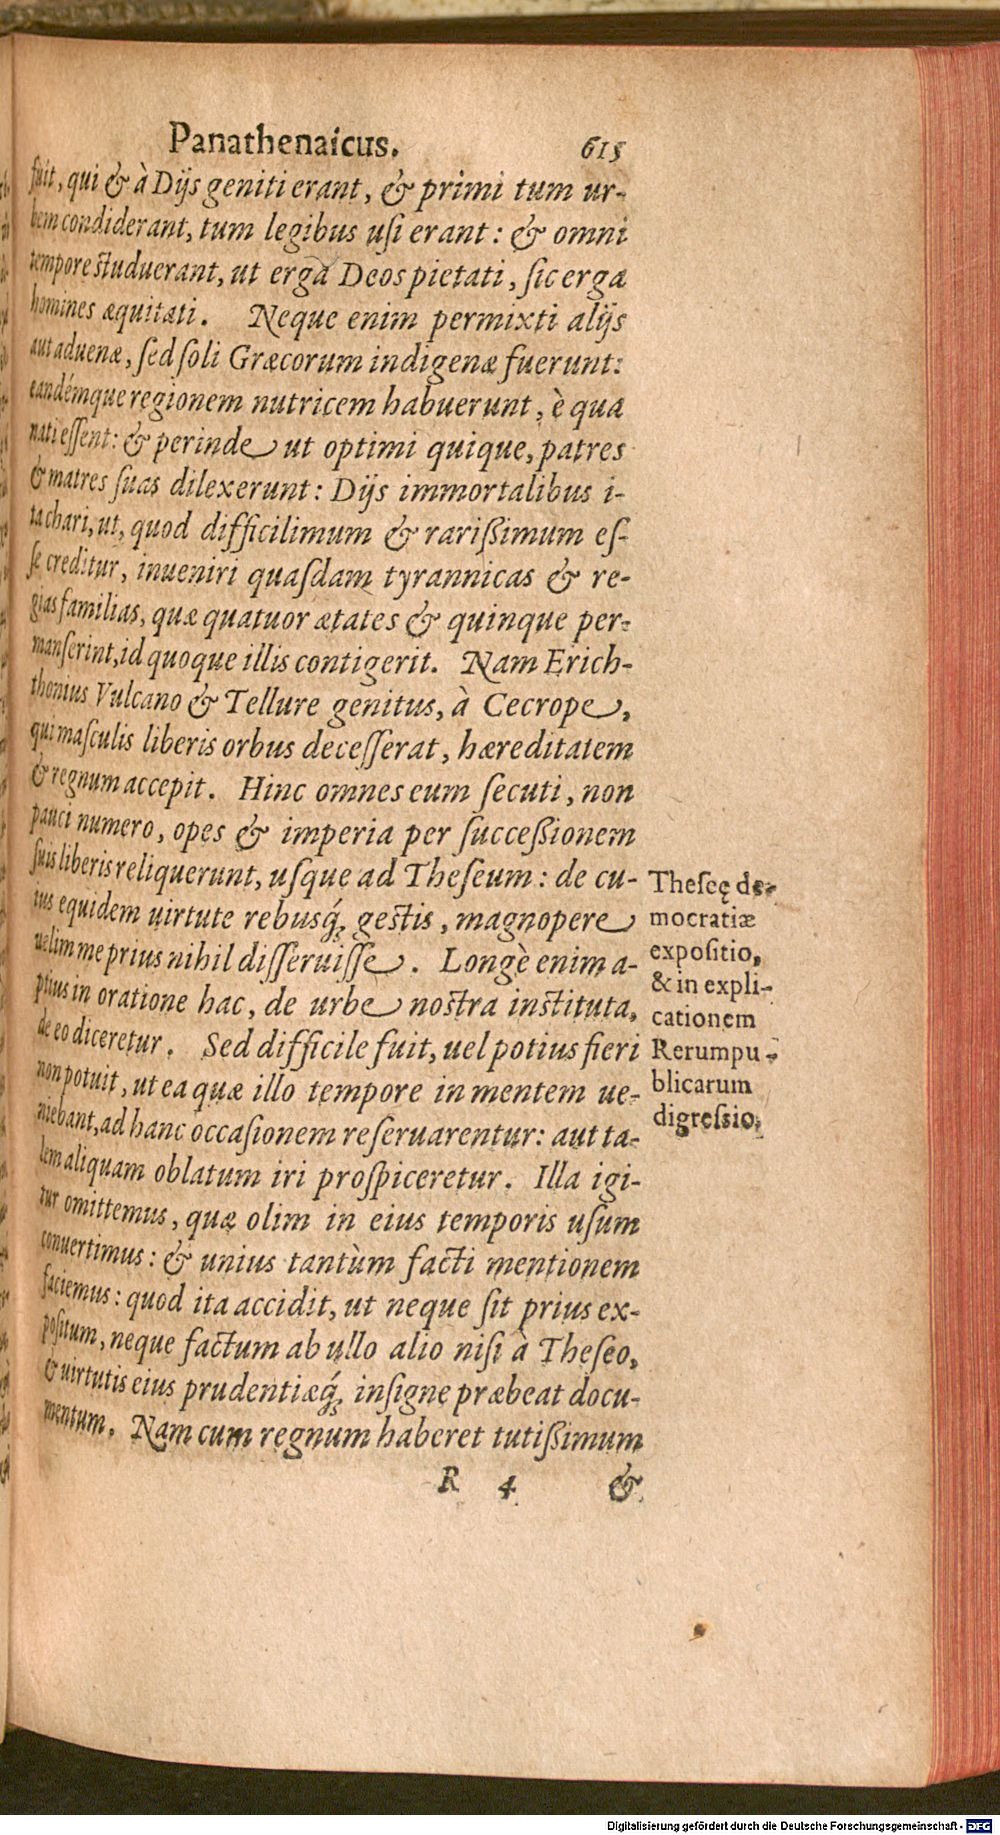 Panathenaicus. 615
fuit, qui & à Dijs geniti erant, & primi tum ur-
bem condiderant, tum legibus usi erant: & omni
tempore studuerant, ut erga Deos pietati, sic erga
homines æquitati. Neque enim permixti alijs
aut aduenæ, sed soli Græcorum indigenæ fuerunt:
eandémque regionem nutricem habuerunt, è qua
nati essent: & perinde ut optimi quique, patres
& matres suas dilexerunt: Dijs immortalibus i-
ta chari, ut, quod difficilimum & rarißimum es-
se creditur, inueniri quasdam tyrannicas & re-
gias familias, quæ quatuor ætates & quinque per-
manserint, id quoque illis contigerit. Nam Erich-
thonius Vulcano & Tellure genitus, à Cecrope,
qui masculis liberis orbus decesserat, hæreditatem
& regnum accepit. Hinc omnes eum secuti, non
pauci numero, opes & imperia per succeßionem
suis liberis reliquerunt, usque ad Theseum: de cu-
ius equidem uirtute rebusq́; gestis, magnopere
uelim me prius nihil disseruisse. Longè enim a-
ptius in oratione hac, de urbe nostra instituta,
de eo diceretur. Sed difficile fuit, uel potius fieri
non potuit, ut ea quæ illo tempore in mentem ue-
niebant, ad hanc occasionem reseruarentur: aut ta-
lem aliquam oblatum iri prospiceretur. Illa igi-
tur omittemus, quæ olim in eius temporis usum
conuertimus: & unius tantùm facti mentionem
faciemus: quod ita accidit, ut neque sit prius ex-
positum, neque factum ab ullo alio nisi à Theseo,
& uirtutis eius prudentiæq́; insigne præbeat docu-
mentum. Nam cum regnum haberet tutißimum
R 4 &
Theseę de-
mocratiæ
expositio,
& in expli-
cationem
Rerumpu-
blicarum
digressio.
Digitalisierung gefördert durch die Deutsche Forschungsgemeinschaft - DFG